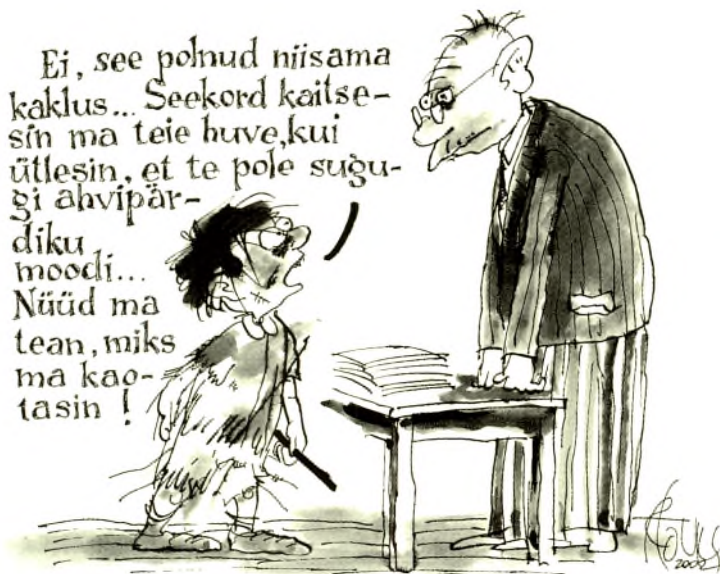 Ei, see polnud niisama
kaklus... Seekord kaitse-
sin ma teie huve, kui
ütlesin, et te pole sugu-
gi ahvipär-
diku
moodi...
Nüüd ma
tean, miks
ma kao-
tasin !
2002